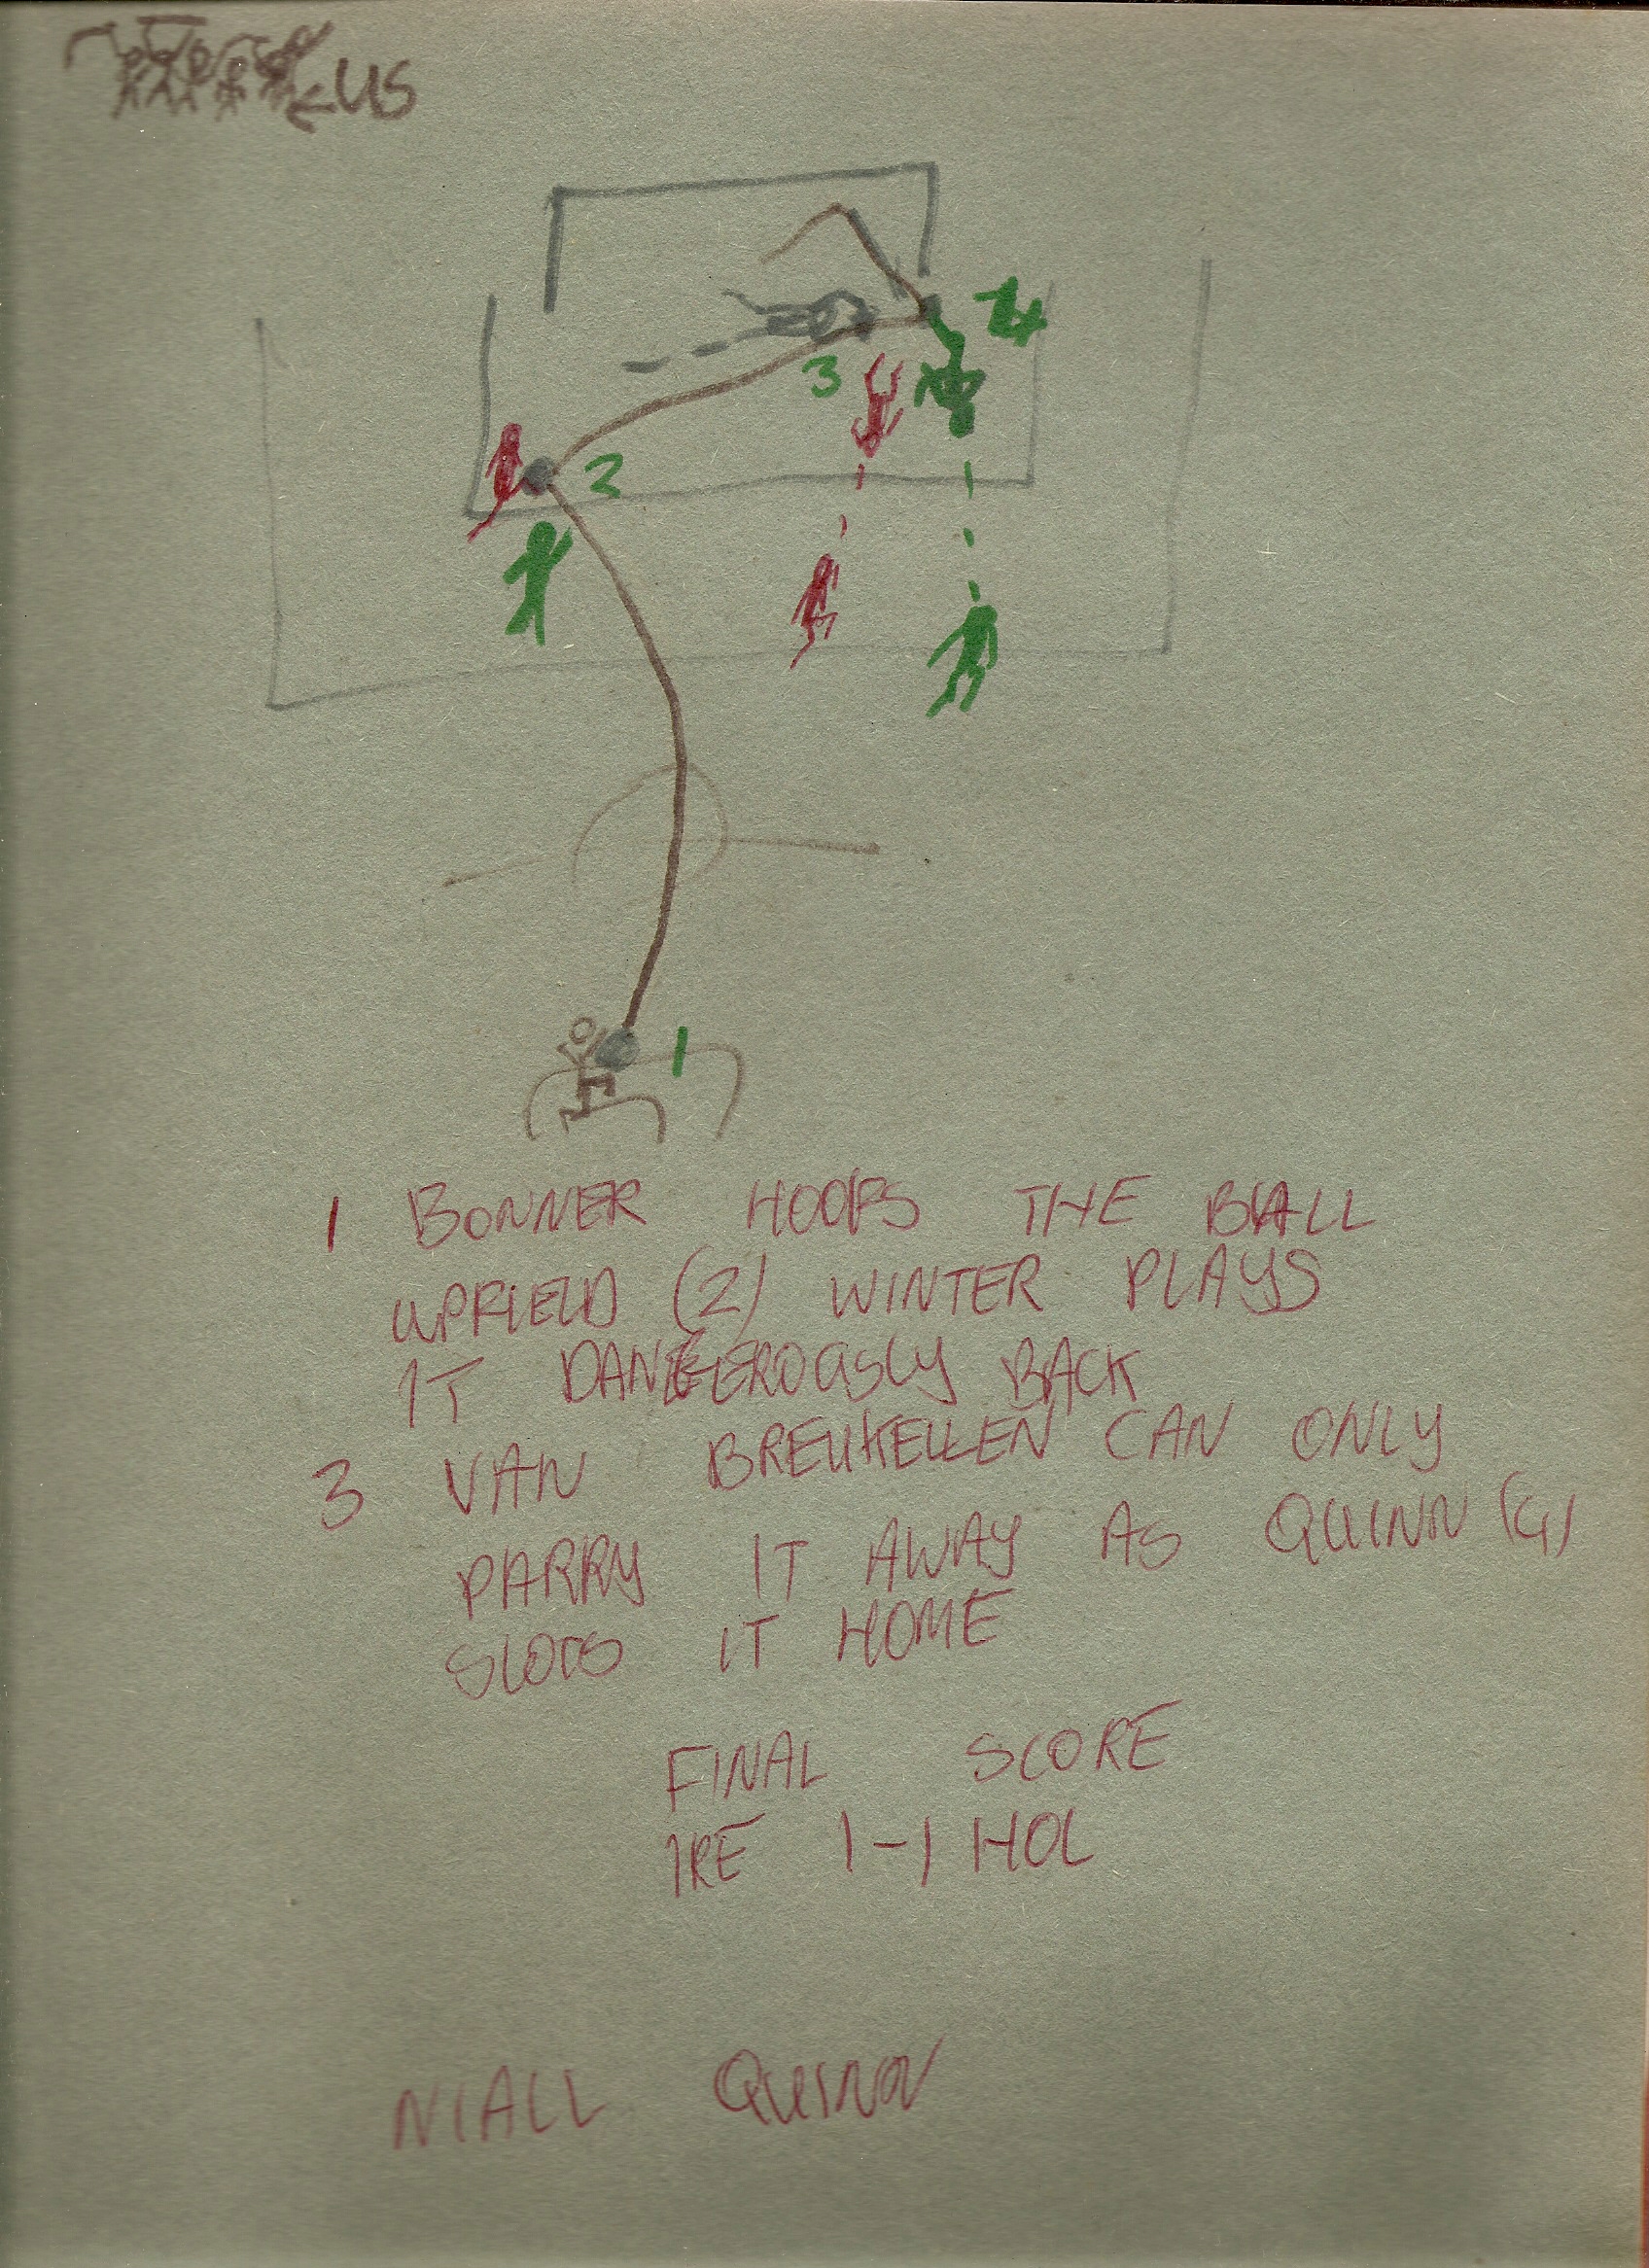 US
4
3
2
1
1 BONNER HOOFS THE BALL
UPFIELD (2) WINTER PLAYS
IT DANGEROUSLY BACK
3 VAN BREUKELLEN CAN ONLY
PARRY IT AWAY AS QUINN (4)
SLOTS IT HOME
FINAL SCORE
IRE 1-1 HOL
NIALL QUINN